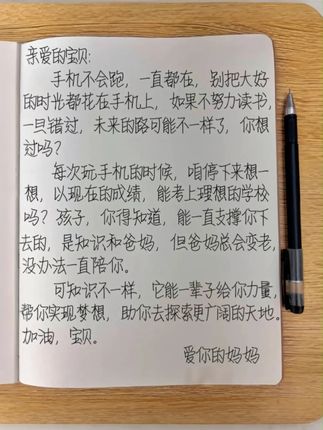 亲爱的宝贝:
手机不会跑，一直都在，别把大好
的时光都花在手机上，如果不努力读书，
一旦错过，未来的路可能不一样了，你想
过吗？
每次玩手机的时候，咱停下来想一
想，以现在的成绩，能考上理想的学校
吗？孩子，你得知道，能一直支撑你下
去的，是知识和爸妈，但爸妈总会变老，
没办法一直陪你。
可知识不一样，它能一辈子给你力量，
帮你实现梦想，助你去探索更广阔的天地。
加油，宝贝。
爱你的妈妈